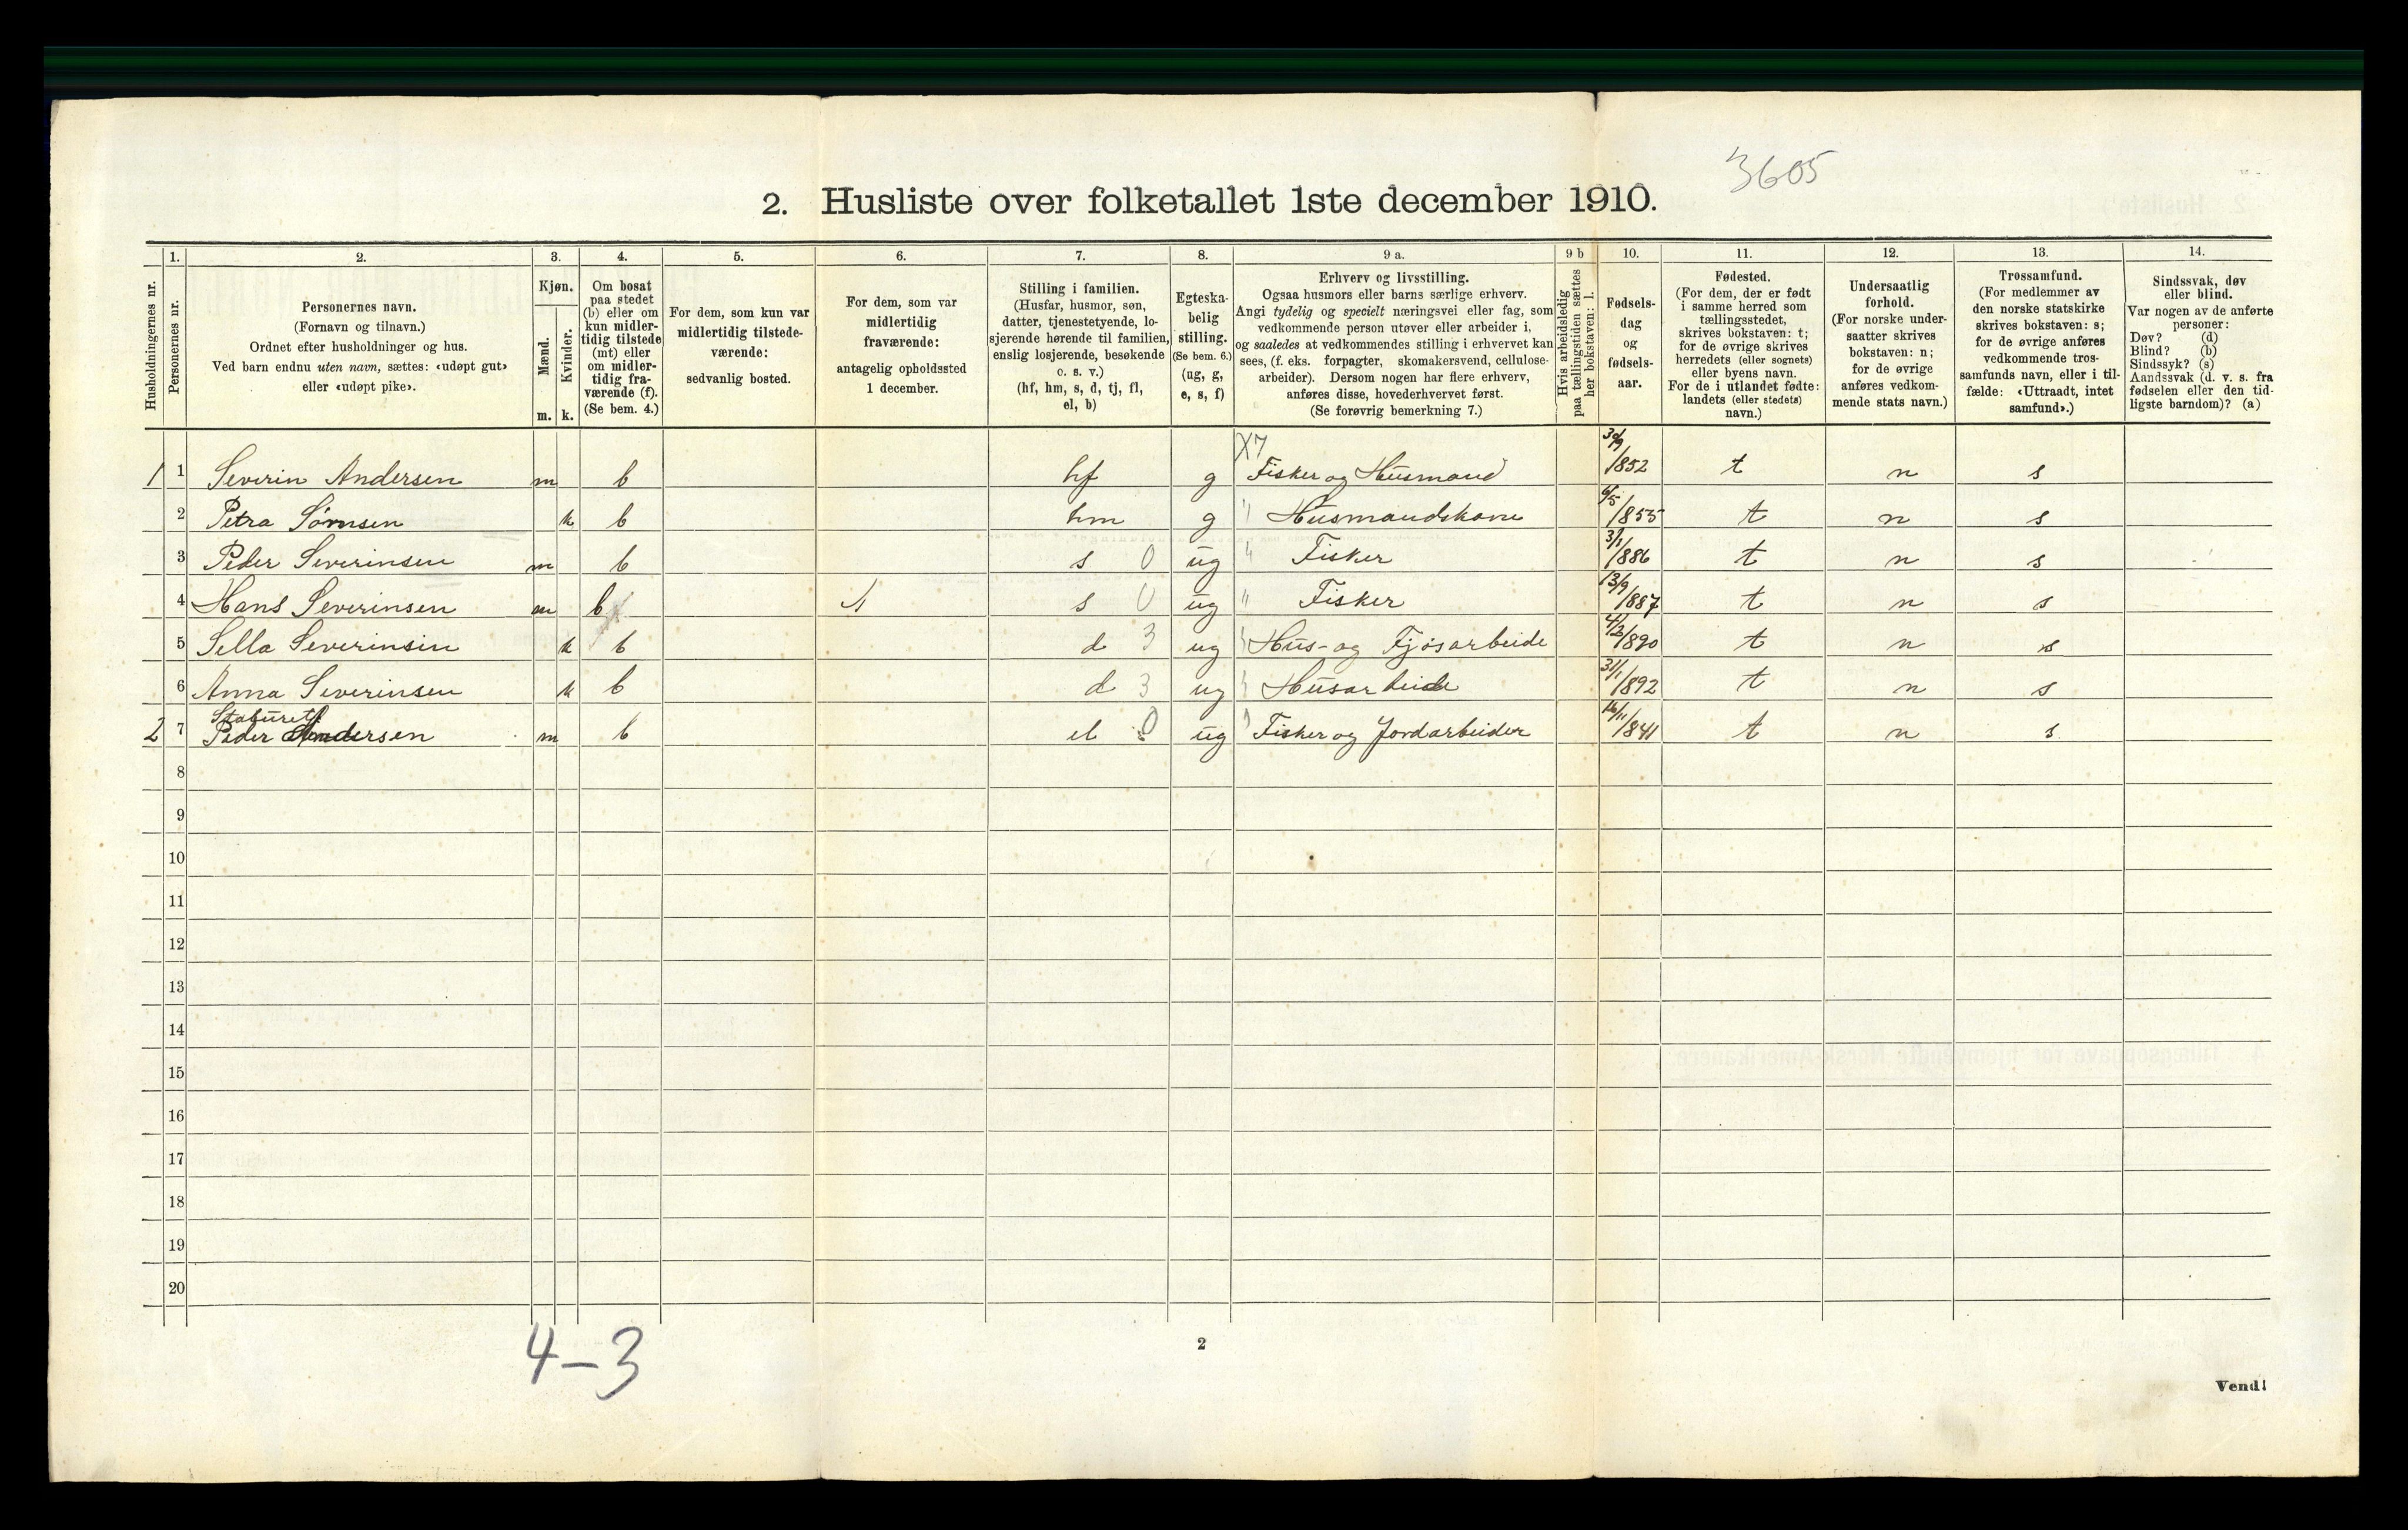 3605
2. Husliste over folketallet 1ste december 1910.
1. 2. 3. 4. 5. 6. 7. 8. 9 a. 9 b 10. 11. 12. 13. 14.
Husholdningernes nr.
Personernes nr.
Personernes navn.
(Fornavn og tilnavn.)
Ordnet efter husholdninger og hus.
Ved barn endnu uten navn, sættes: «udøpt gut»
eller «udøpt pike».
Kjøn.
Mænd.
Kvinder.
m. k.
Om bosat
paa stedet
(b) eller om
kun midler-
tidig tilstede
(mt) eller
om midler-
tidig fra-
værende (f).
(Se bem. 4.)
For dem, som kun var
midlertidig tilstede-
værende:
sedvanlig bosted.
For dem, som var
midlertidig
fraværende:
antagelig opholdssted
1 december.
Stilling i familien.
(Husfar, husmor, søn,
datter, tjenestetyende, lo-
sjerende hørende til familien,
enslig losjerende, besøkende
o. s. v.)
(hf, hm, s, d, tj, fl,
el, b)
Egteska-
belig
stilling.
(Se bem. 6.)
(ug, g,
e, s, f)
Erhverv og livsstilling.
Ogsaa husmors eller barns særlige erhverv.
Angi tydelig og specielt næringsvei eller fag, som
vedkommende person utøver eller arbeider i,
og saaledes at vedkommendes stilling i erhvervet kan
sees, (f. eks. forpagter, skomakersvend, cellulose-
arbeider). Dersom nogen har flere erhverv,
anføres disse, hovederhvervet først.
(Se forøvrig bemerkning 7.)
Hvis arbeidsledig
paa tællingstiden sættes
her bokstaven: l.
Fødsels-
dag
og
fødsels-
aar.
Fødested.
(For dem, der er født
i samme herred som
tællingsstedet,
skrives bokstaven: t;
for de øvrige skrives
herredets (eller sognets)
eller byens navn.
For de i utlandet fødte:
landets (eller stedets)
navn.)
Undersaatlig
forhold.
(For norske under-
saatter skrives
bokstaven: n;
for de øvrige
anføres vedkom-
mende stats navn.)
Trossamfund.
(For medlemmer av
den norske statskirke
skrives bokstaven: s;
for de øvrige anføres
vedkommende tros-
samfunds navn, eller i til-
fælde: «Uttraadt, intet
samfund».)
Sindssvak, døv
eller blind.
Var nogen av de anførte
personer:
Døv? (d)
Blind? (b)
Sindssyk? (s)
Aandssvak (d. v. s. fra
fødselen eller den tid-
ligste barndom)? (a)
X7
1 1 Severin Andersen m b hf g Fisker og Husmand 30/9 /1852 t n s
2 Petra Sørnsen k b hm g " Husmandskone 6/5 /1855 t n s
3 Peder Severinsen m b s 0 ug " Fisker 3/1 /1886 t n s
4 Hans Severinsen m b s 0 ug " Fisker 13/9 /1887 t n s
5 Sella Severinsin k b d 3 ug " Hus- og Fjøsarbeide 4/2 /1890 t n s
6 Anna Severinsen k b d 3 ug " Husarbeide 31/1 /1892 t n s
Staburet
2 7 Peder Andersen m b el 0 ug " Fisker og Jordarbeider 16/11 /1841 t n s
8
9
10
11
12
13
14
15
16
17
18
19
20
4-3
2
Vend!